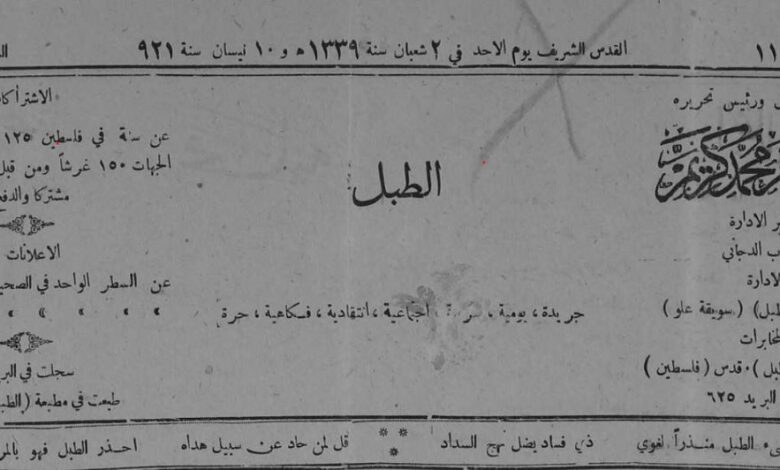 ١١
القدس الشريف يوم الاحد في ٢ شعبان سنة ١٣٣٩ ه و ١٠ نيسان سنة ٩٢١
ورئيس تحريره
محمد كريم
الادارة
الدجاني
لادارة
طبل) (سويقة علو)
لمخابرات
بل) ٠ قدس (فلسطين)
البريد ٦٢٥
الطبل
جريدة، يومية، اجتماعية، انتقادية، فكاهية، حرة
الاشتراكا
عن سنة في فلسطين ١٢٥
الجهات ١٥٠ غرشاً ومن قبل
مشتركا والدفع
الاعلانات
عن السطر الواحد في الصحي
» » » » »
سجلت في البر
طبعت في مطبعة (الطب
ء الطبل منذراً لغوي
ذي فساد يضل نهج السداد
قل لمن حاد عن سبيل هداه
احذر الطبل فهو بالمر